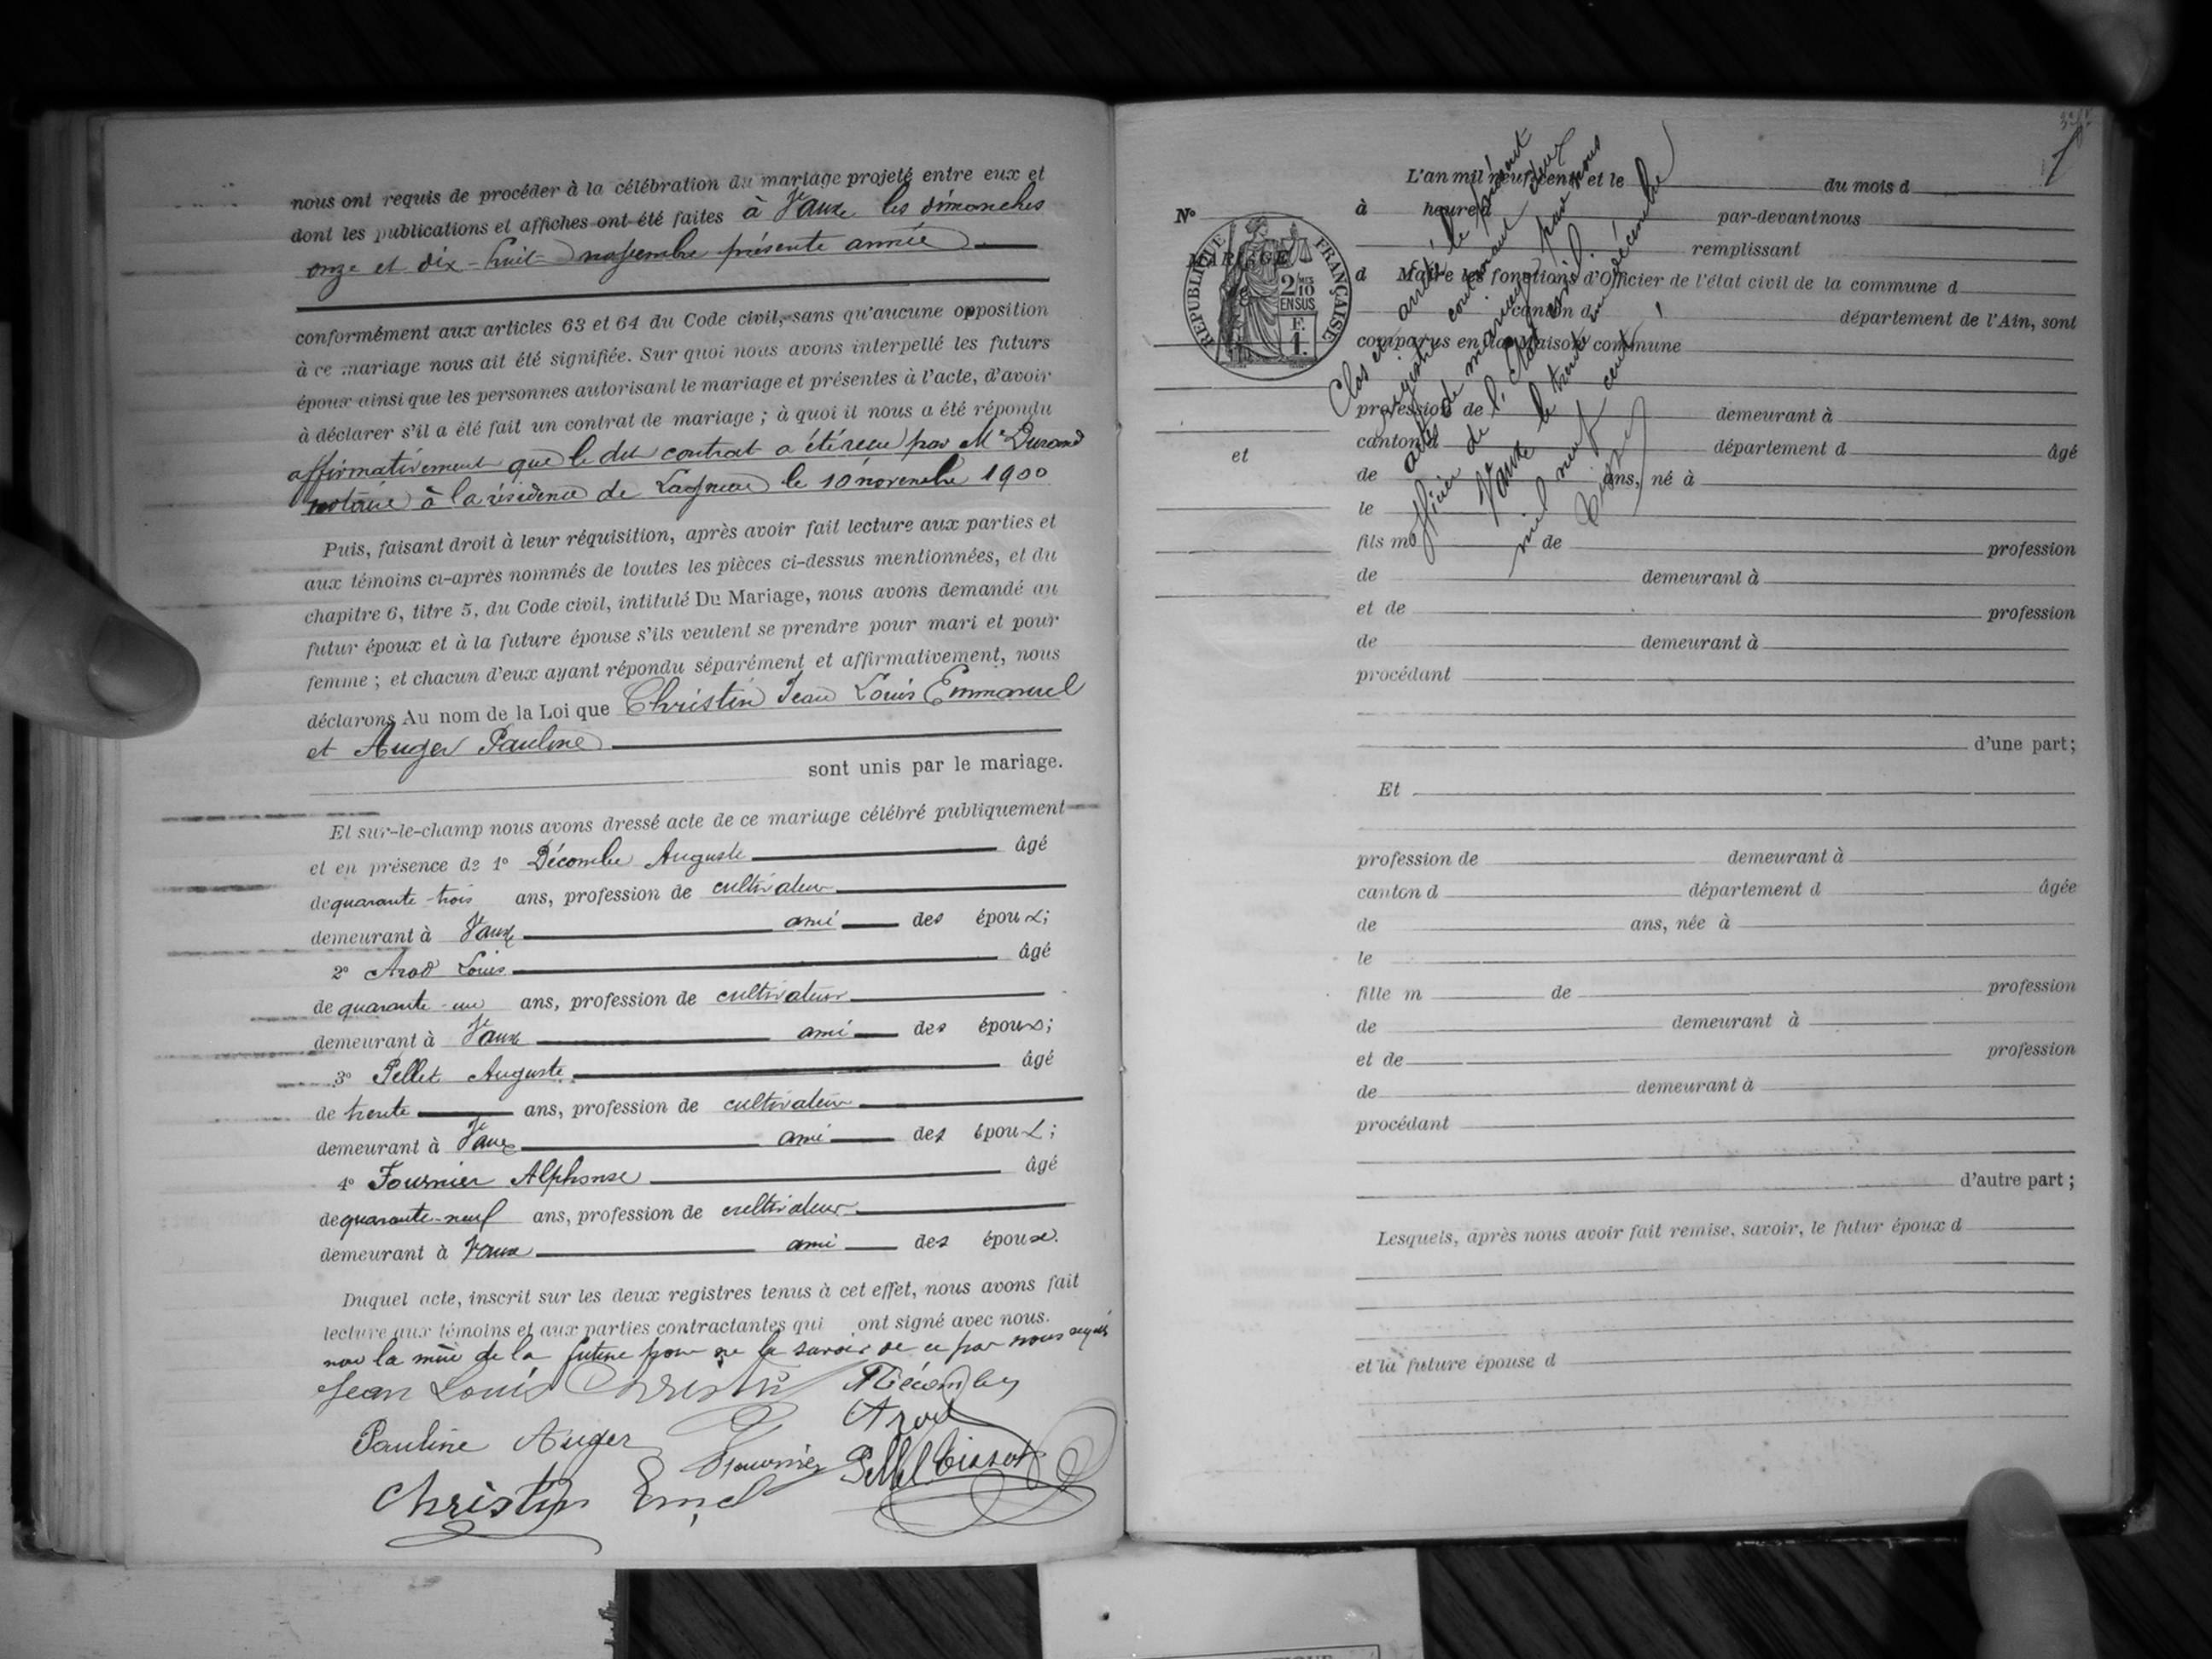 nous ont requis de procéder à la célébration du mariage projeté entre eux et
dont les publications et affiches ont été faites à Vaux les dimanches
onze et dix-huit novembre présente année
conformément aux articles 63 et 64 du Code civil, sans qu'aucune opposition
à ce mariage nous ait été signifiée. Sur quoi nous avons interpellé les futurs
époux ainsi que les personnes autorisant le mariage et présentes à l'acte, d'avoir
à déclarer s'il a été fait un contrat de mariage ; à quoi il nous a été répondu
affirmativement que le dit contrat a été reçu par Me Durand
notaire à la résidence de Lagnieu le 10 novembre 1900
Puis, faisant droit à leur réquisition, après avoir fait lecture aux parties et
aux témoins ci-après nommés de toutes les pièces ci-dessus mentionnées, et du
chapitre 6, titre 5, du Code civil, intitulé Du Mariage, nous avons demandé au
futur époux et à la future épouse s'ils veulent se prendre pour mari et pour
femme ; et chacun d'eux ayant répondu séparément et affirmativement, nous
déclarons Au nom de la Loi que Christin Jean Louis Emmanuel
et Auger Pauline
sont unis par le mariage.
Et sur-le-champ nous avons dressé acte de ce mariage célébré publiquement
et en présence de 1° Décombe Auguste âgé
de quarante-trois ans, profession de cultivateur
demeurant à Vaux ami des époux;
2° Arod Louis âgé
de quarante-un ans, profession de cultivateur
demeurant à Vaux ami des époux;
3° Pellet Auguste âgé
de trente ans, profession de cultivateur
demeurant à Vaux ami des époux;
4° Fournier Alphonse âgé
de quarante-neuf ans, profession de cultivateur
demeurant à Vaux ami des époux.
Duquel acte, inscrit sur les deux registres tenus à cet effet, nous avons fait
lecture aux témoins et aux parties contractantes qui ont signé avec nous.
non la mère de la future pour ne le savoir de ce par nous requis
Jean Louis Christin Décombe
Arod
Pauline Auger Fournier Pellet Tissot
Christin Emel
L'an mil neuf cent et le du mois d
N° à heure d par-devant nous
remplissant
MARIAGE
RÉPUBLIQUE FRANÇAISE
2/10 EN SUS
F. 1.
d Maire les fonctions d'Officier de l'état civil de la commune d
canton d département de l'Ain, sont
comparus en la Maison commune
Clos et arrêté le présent
registre courant aux
actes de mariage par nous
officier de l'état civil
Vaux le trente un décembre
mil neuf cent
Tissot
profession de demeurant à
canton d département d âgé
et
de ans, né à
le
fils m de profession
de demeurant à
et de profession
de demeurant à
procédant
d'une part;
Et
profession de demeurant à
canton d département d âgée
de ans, née à
le
fille m de profession
de demeurant à
et de profession
de demeurant à
procédant
d'autre part ;
Lesquels, après nous avoir fait remise, savoir, le futur époux d
et la future épouse d